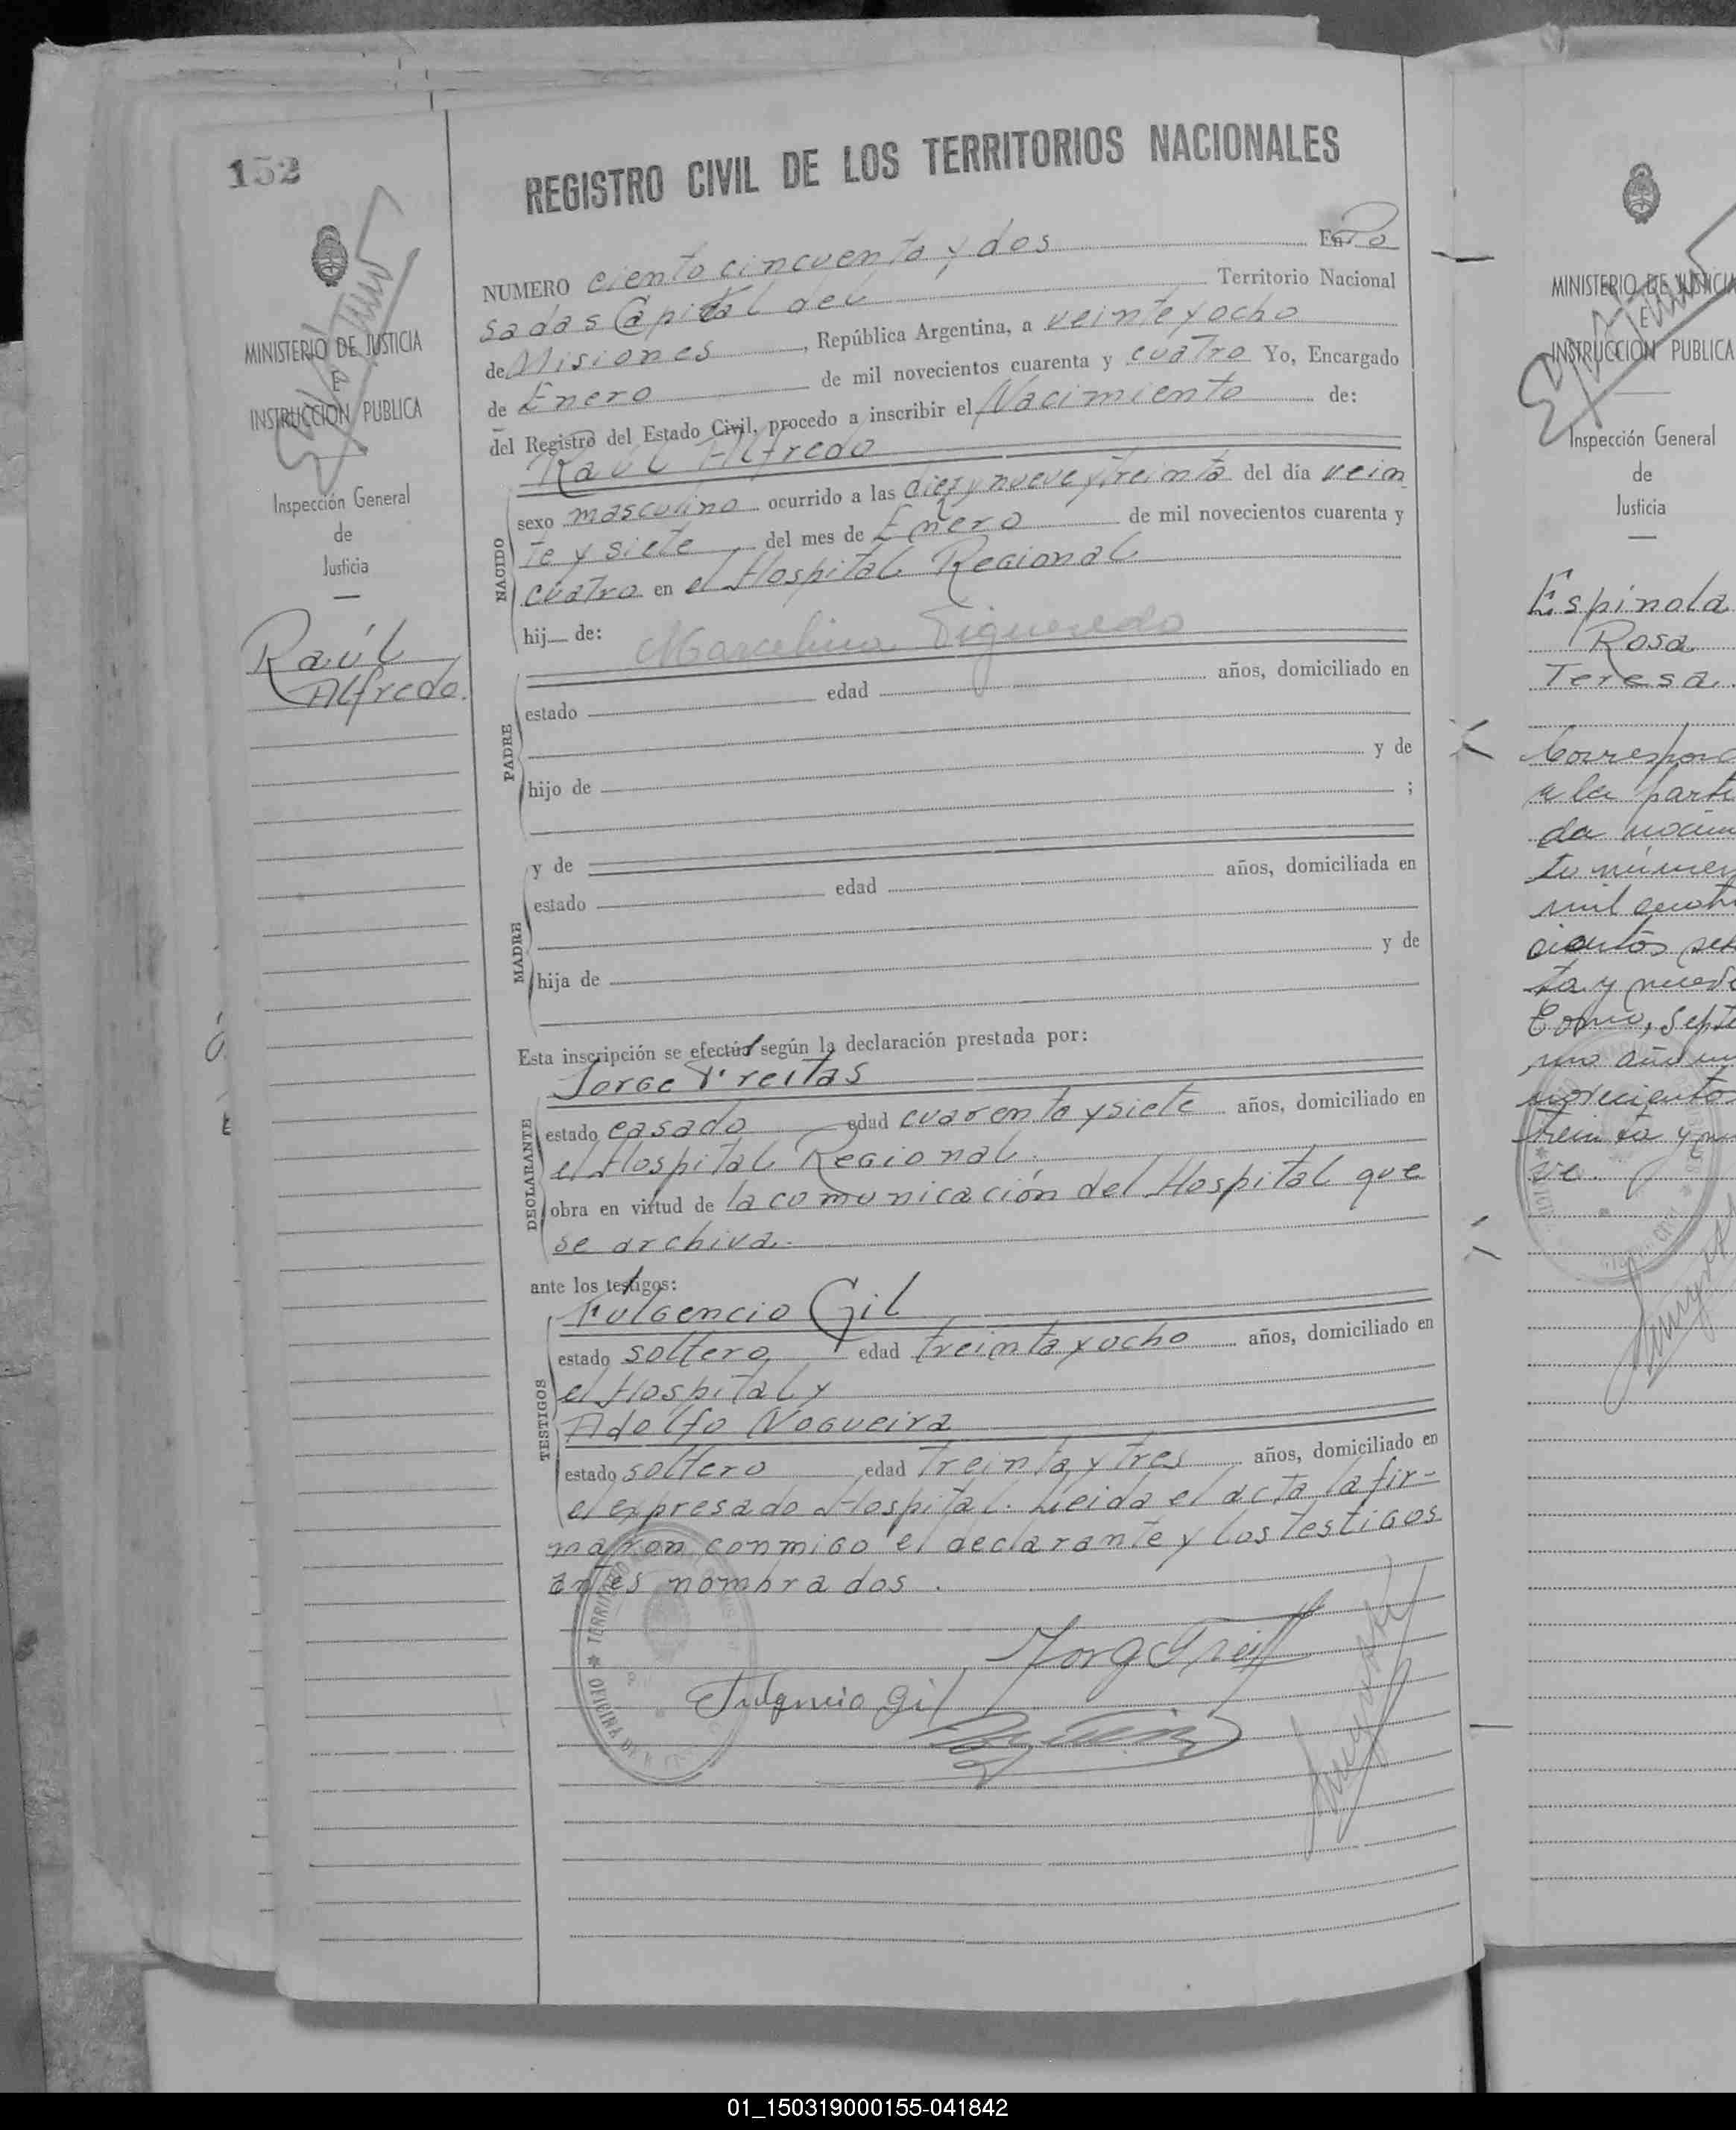 152
MINISTERIO DE JUSTICIA
E
INSTRUCCION PUBLICA
Inspección General
de
Justicia
Raúl
Alfredo.
REGISTRO CIVIL DE LOS TERRITORIOS NACIONALES
NUMERO ciento cincuenta y dos En Po
sadas Capital del Territorio Nacional
de Misiones, República Argentina, a veinte y ocho
de Enero de mil novecientos cuarenta y cuatro Yo, Encargado
del Registro del Estado Civil, procedo a inscribir el Nacimiento de:
Raúl Alfredo
NACIDO
sexo masculino ocurrido a las diez y nueve y treinta del día vein
te y siete del mes de Enero de mil novecientos cuarenta y
cuatro en el Hospital Regional
hij de: Marcelina Figueredo
PADRE
estado edad años, domiciliado en
y de
hijo de ;
MADRE
y de
estado edad años, domiciliada en
y de
hija de
Esta inscripción se efectúa según la declaración prestada por:
Jorge Freitas
DECLARANTE
estado casado edad cuarenta y siete años, domiciliado en
el Hospital Regional.
obra en virtud de la comunicación del Hospital que
se archiva.
ante los testigos:
Fulgencio Gil
TESTIGOS
estado soltero edad treinta y ocho años, domiciliado en
el Hospital y
Adolfo Nogueira
estado soltero edad treinta y tres años, domiciliado en
el expresado Hospital. Leida el acta la fir-
maron conmigo el declarante y los testigos
antes nombrados.
TERRITORIO
OFICINA DE
Jorge Freit
Fulgencio Gil
MINISTERIO DE JUSTICIA
E
INSTRUCCION PUBLICA
Inspección General
de
Justicia
Espinola
Rosa
Teresa.
Correspond
a la parti
da nacim
to númer
mil
cientos
ta y nueve
Tomo, Septi
mo año m
novecientos
trein ta y nu
ve.
01_150319000155-041842